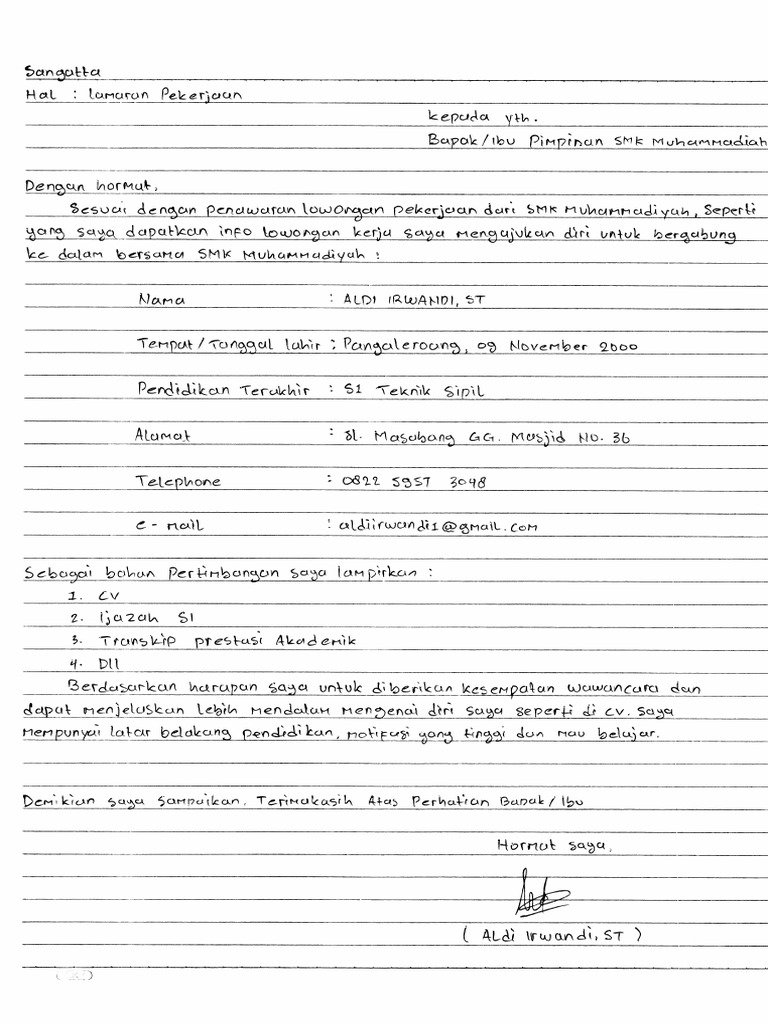 Sangatta
Hal : lamaran Pekerjaan
kepada yth.
Bapak/Ibu Pimpinan SMK Muhammadiah
Dengan hormat,
Sesuai dengan penawaran lowongan pekerjaan dari SMK Muhammadiyah, Seperti
yang saya dapatkan info lowongan kerja saya mengajukan diri untuk bergabung
ke dalam bersama SMK Muhammadiyah :
Nama : ALDI IRWANDI, ST
Tempat/Tanggal lahir : Pangaleroang, 09 November 2000
Pendidikan Terakhir : S1 Teknik Sipil
Alamat : Jl. Masabang GG. Masjid No. 36
Telephone : 0822 5957 3048
e - mail : aldiirwandi1@gmail.com
Sebagai bahan Pertimbangan saya lampirkan :
1. CV
2. Ijazah S1
3. Transkip prestasi Akademik
4. Dll
Berdasarkan harapan saya untuk diberikan kesempatan wawancara dan
dapat menjelaskan lebih mendalam mengenai diri saya seperti di CV. Saya
mempunyai latar belakang pendidikan, motifasi yang tinggi dan mau belajar.
Demikian saya sampaikan. Terimakasih Atas Perhatian Bapak/Ibu
Hormat saya,
( ALdi Irwandi, ST )